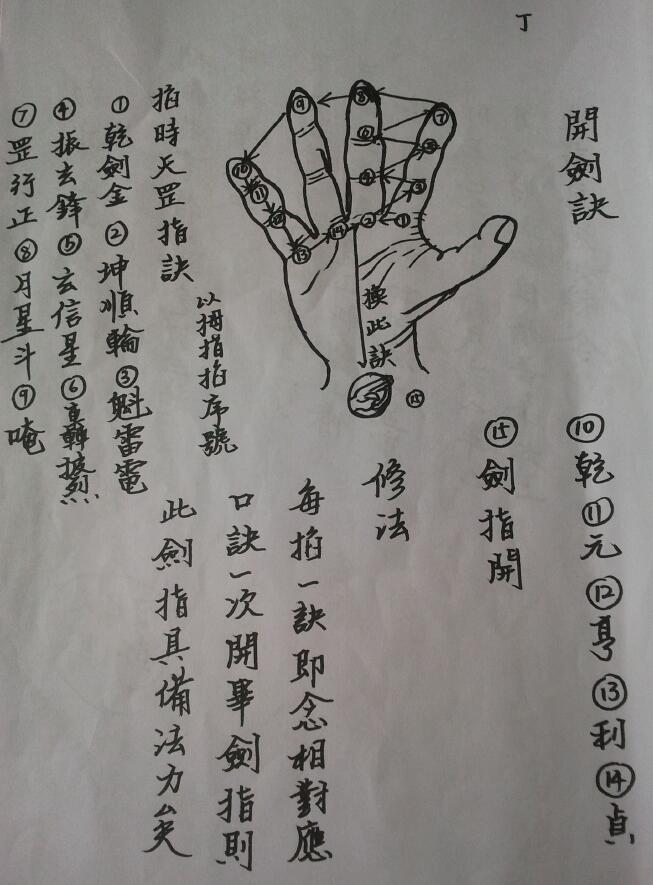 丁
開劍訣
⑦
⑤
③
①
⑧
⑥
④
②
⑨
⑭
⑩
⑪
⑫
⑬
換此訣
⑮
掐時天罡指訣
以拇指掐序號
①乾劍金②坤順輪③魁雷電
④振玄鋒⑤玄信星⑥轉
⑦罡行正⑧月星斗⑨唵
⑩乾⑪元⑫亨⑬利⑭貞
⑮劍指開
修法
每掐一訣即念相對應
口訣一次開畢劍指則
此劍指具備法力矣